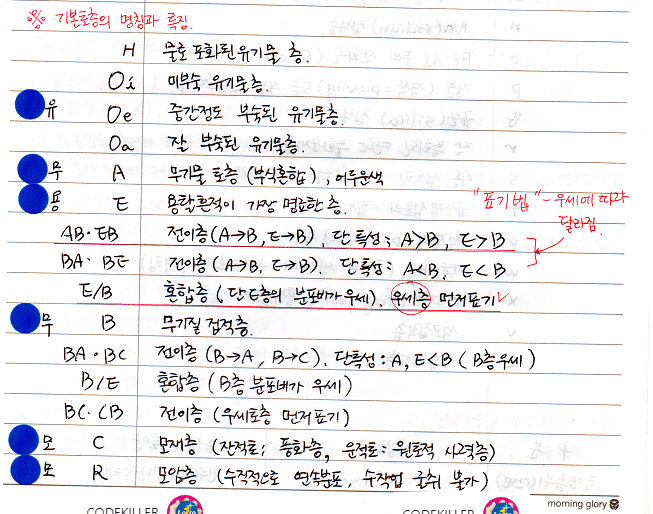 ※ 기본토층의 명칭과 특징.
H 물로 포화된 유기물 층.
Oi 미부숙 유기물층.
유 Oe 중간정도 부숙된 유기물층.
Oa 잘 부숙된 유기물층.
무 A 무기물 토층 (부식혼합), 어두운색
용 E 용탈흔적이 가장 명료한 층.
"표기법" - 우세에 따라 달라짐.
AB·EB 전이층(A→B, E→B), 단 특성; A>B, E>B
BA·BE 전이층(A→B, E→B). 단특성; A<B, E<B
E/B 혼합층 (단 E층의 분포비가 우세). 우세층 먼저표기
무 B 무기질 집적층.
BA·BC 전이층 (B→A, B→C). 단특성; A, E<B (B층우세)
B/E 혼합층 (B층 분포비가 우세)
BC·CB 전이층 (우세토층 먼저표기)
모 C 모재층 (잔적토; 풍화층, 운적토: 원토적 사력층)
모 R 모암층 (수직적으로 연속분포 수작업 굴취 불가)
CODEKILLER CODEKILLER
morning glory